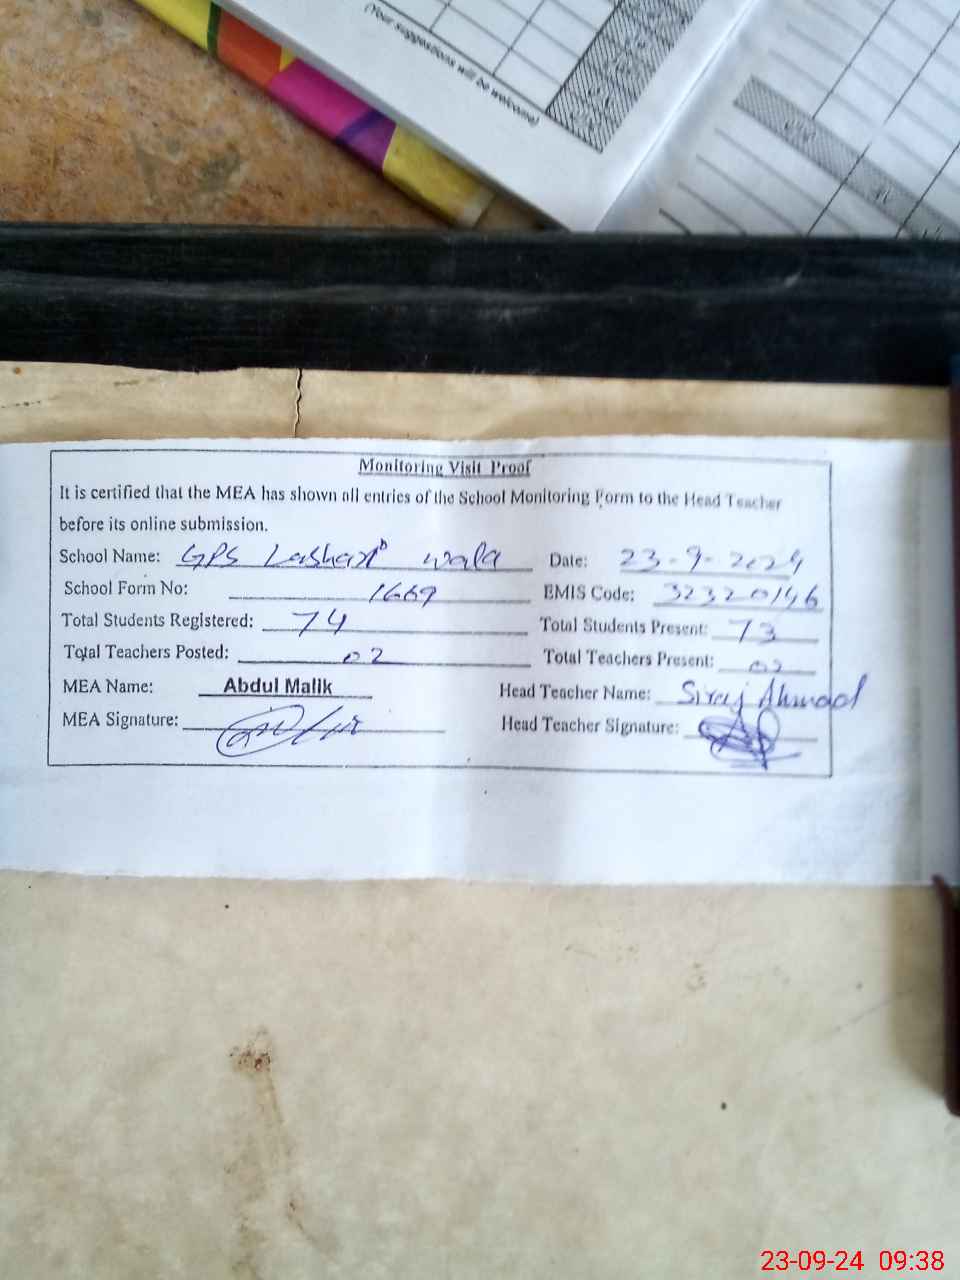 (Your suggestions will be welcome)
Monitoring Visit Proof
It is certified that the MEA has shown all entries of the School Monitoring Form to the Head Teacher
before its online submission.
School Name: GPS Lashari wala Date: 23-9-2024
School Form No: 1669 EMIS Code: 32320146
Total Students Registered: 74 Total Students Present: 73
Total Teachers Posted: 02 Total Teachers Present: 02
MEA Name: Abdul Malik Head Teacher Name: Siraj Ahmad
MEA Signature: Head Teacher Signature:
23-09-24 09:38